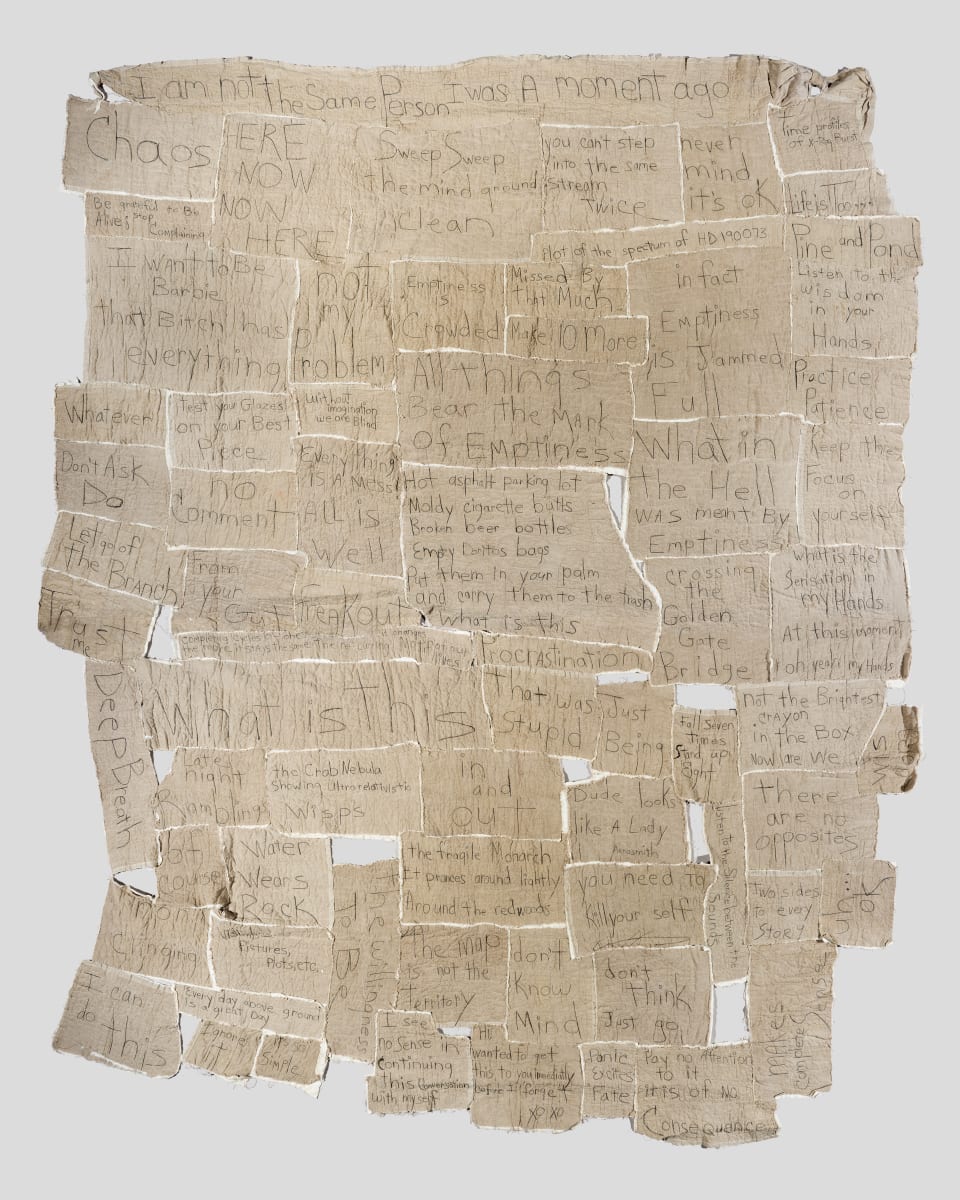 I am not the Same Person I was A moment ago
Chaos
HERE
NOW
NOW
HERE
Sweep Sweep
the mind ground
clean
you cant step
into the same
stream
Twice
never
mind
it's OK
Time profiles
of X-Ray Burst
Life is Too
Be grateful to Be
Alive; stop
Complaining
Plot of the spectrum of HD 190073
Pine and Pond
Listen to the
wisdom
in your
Hands
I WAnt to Be
Barbie
that Bitch has
everything
not
my
Problem
Emptiness
is
Crowded
Missed By
that Much
Make 10 More
in fact
Emptiness
is Jammed
Full
All things
Bear the MArk
Of Emptiness
Practice
Patience
Whatever
Test your Glazes
on your Best
Piece
Without
imagination
we are Blind
Everything
is A Mess
All is
Well
What in
the Hell
was meant By
Emptiness
Keep the
Focus
on
yourself
Don't Ask
Do
no
Comment
Hot asphalt parking lot
Moldy cigarette butts
Broken beer bottles
Empty Doritos bags
Put them in your palm
and carry them to the trash
What is this
Let go of
the Branch
From
your
Gut
FreakOut
crossing
the
Golden
Gate
Bridge
what is the
Sensation in
my Hands
At this moment
oh yeah my Hands
Trust
me
Procrastination
Deep Breath
What is This
That was
Stupid
Just
Being
Fall Seven
Times
Stand up
Eight
not the Brightest
crayon
in the Box
Now are we
Late
night
Ramblings
the Crab Nebula
Showing Ultrarelativistic
Wisps
in
and
out
Dude looks
like A Lady
Aerosmith
Listen to the Silence between the
Sounds
There
are no
opposites
of
course
Water
Wears
Rock
the fragile Monarch
It prances around lightly
Around the redwoods
you need to
Kill your self
Two sides
to every
Story
uh...
OK
mom
Clinging
Pictures,
Plots, etc.
The willingness
to Be
the map
is not the
territory
don't
Know
Mind
don't
Think
Just go
MAkes
Complete
I can
do this
Every day above ground
is a great Day
Ignore
it
it's so
Simple
I see
no Sense in
Continuing
this Conversation
with myself
Hi
wanted to get
this to you immediatly
before I forget
XO XO
Panic
Excites
Fate
Pay no Attention
to it
it is of No
Consequence